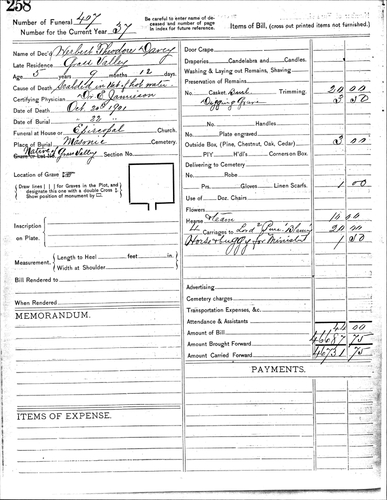 258
Number of Funeral 407
Number for the Current Year 37
Be carefully to enter name of de-
ceased and number of page
in index for future reference.
Name of Dec'd Herbert Theodore Davey
Late Residence Grass Valley
Age 5 years 9 months 12 days.
Cause of Death Scalded in vat of hot water
Certifying Physician Dr. E. Jamieson
Date of Death Oct 20th 1901
Date of Burial " 22 "
Funeral at House or Episcopal Church.
Place of Burial Masonic Cemetery.
Native of Grass Valley Section No.
Grave or Lot No.
Location of Grave
Draw lines | | for Graves in the Plot, and
designate this one with a double Cross
Show position of monument by
Inscription
on Plate.
Measurement. Length to Heel feet in.
Width at Shoulder
Bill Rendered to
When Rendered
MEMORANDUM.
ITEMS OF EXPENSE.
Items of Bill, (cross out printed items not furnished.)
Door Crape
Draperies Candelabra and Candles.
Washing & Laying out Remains, Shaving
Preservation of Remains
No. Casket, Burl Trimming. 20 00
Digging Grave 3 50
No. Handles
Plate engraved
Outside Box, (Pine, Chestnut, Oak, Cedar) 3 00
PIY H'dl's Corners on Box.
Delivering to Cemetery
No. Robe
Prs. Gloves Linen Scarfs. 1 00
Use of Doc. Chairs
Flowers
Hearse Team 10 00
4 Carriages to 20 00
Horse & buggy for Minister 1 50
Advertising
Cemetery charges
Transportation Expenses, &c.
Attendance & Assistants
Amount of Bill 44 00
Amount Brought Forward 46687 75
Amount Carried Forward 46731 75
PAYMENTS.